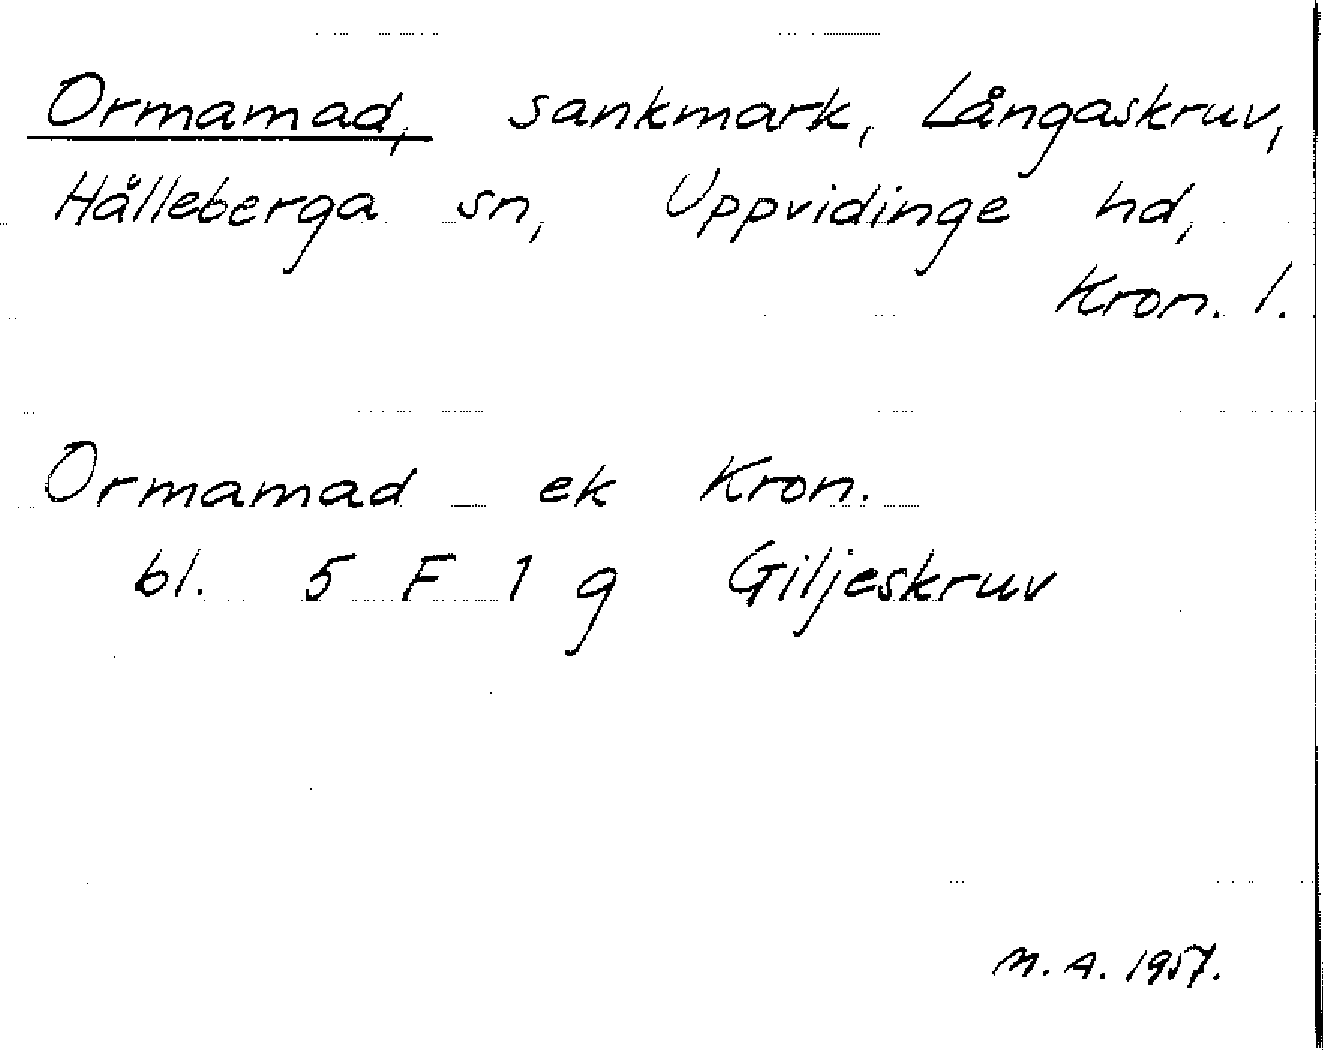 Ormamad, sankmark, Långaskruv,
Hålleberga sn, Uppvidinge hd,
Kron. l.
Ormamad _ ek Kron.
bl. 5 F 1 g Giljeskruv
M. A. 1957.